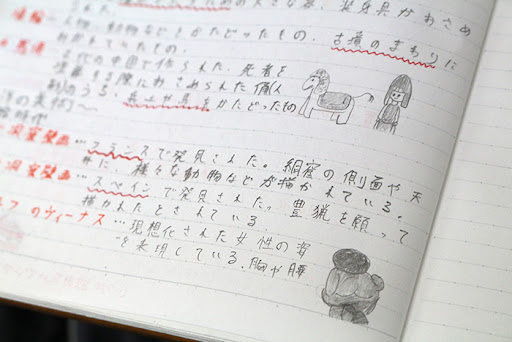 された。
の大きな墓、装身具がおさめ
人物、動物などをかたどったもの。古墳のまわりに
わかれていたもの。
古代の中国で作られた、死者を
埋葬する際におさめられた俑人
形のうち、兵士や馬をかたどったもの
洞窟壁画…フランスで発見された。洞窟の側面や天
井に、様々な動物などが描かれている。
洞窟壁画…スペインで発見された。豊猟を願って
描かれたとされている。
のヴィーナス…理想化された女性の姿
を表現している。胸や腰